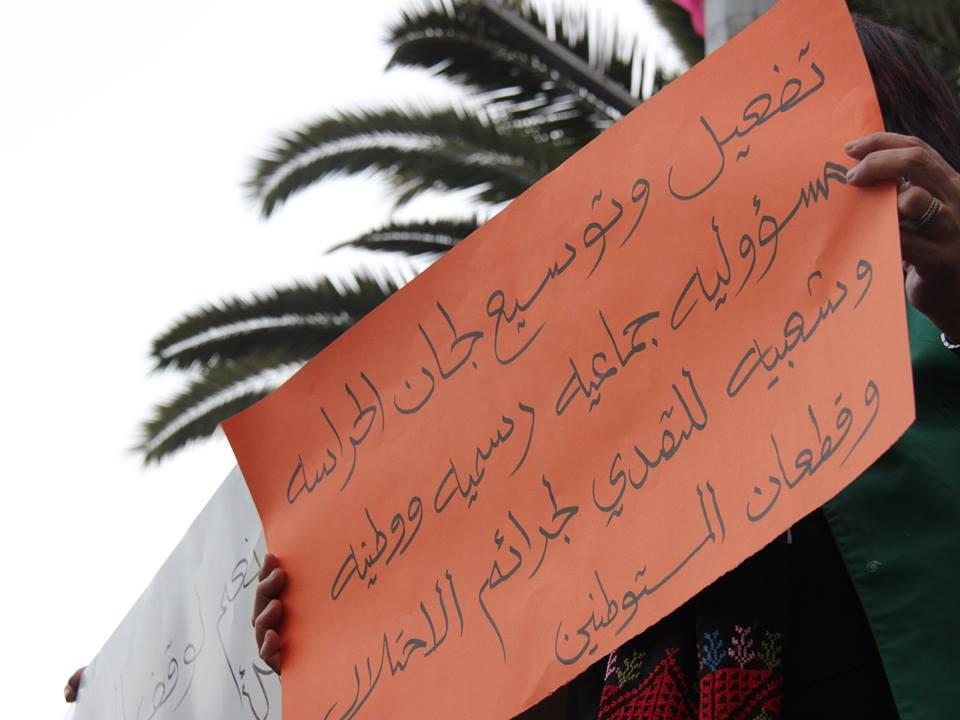 تفعيل وتوسيع لجان الحراسه
مسؤوليه جماعيه رسميه ووطنيه
وشعبيه للتصدي لجرائم الاحتلال
وقطعان المستوطنين
نعم لوقف